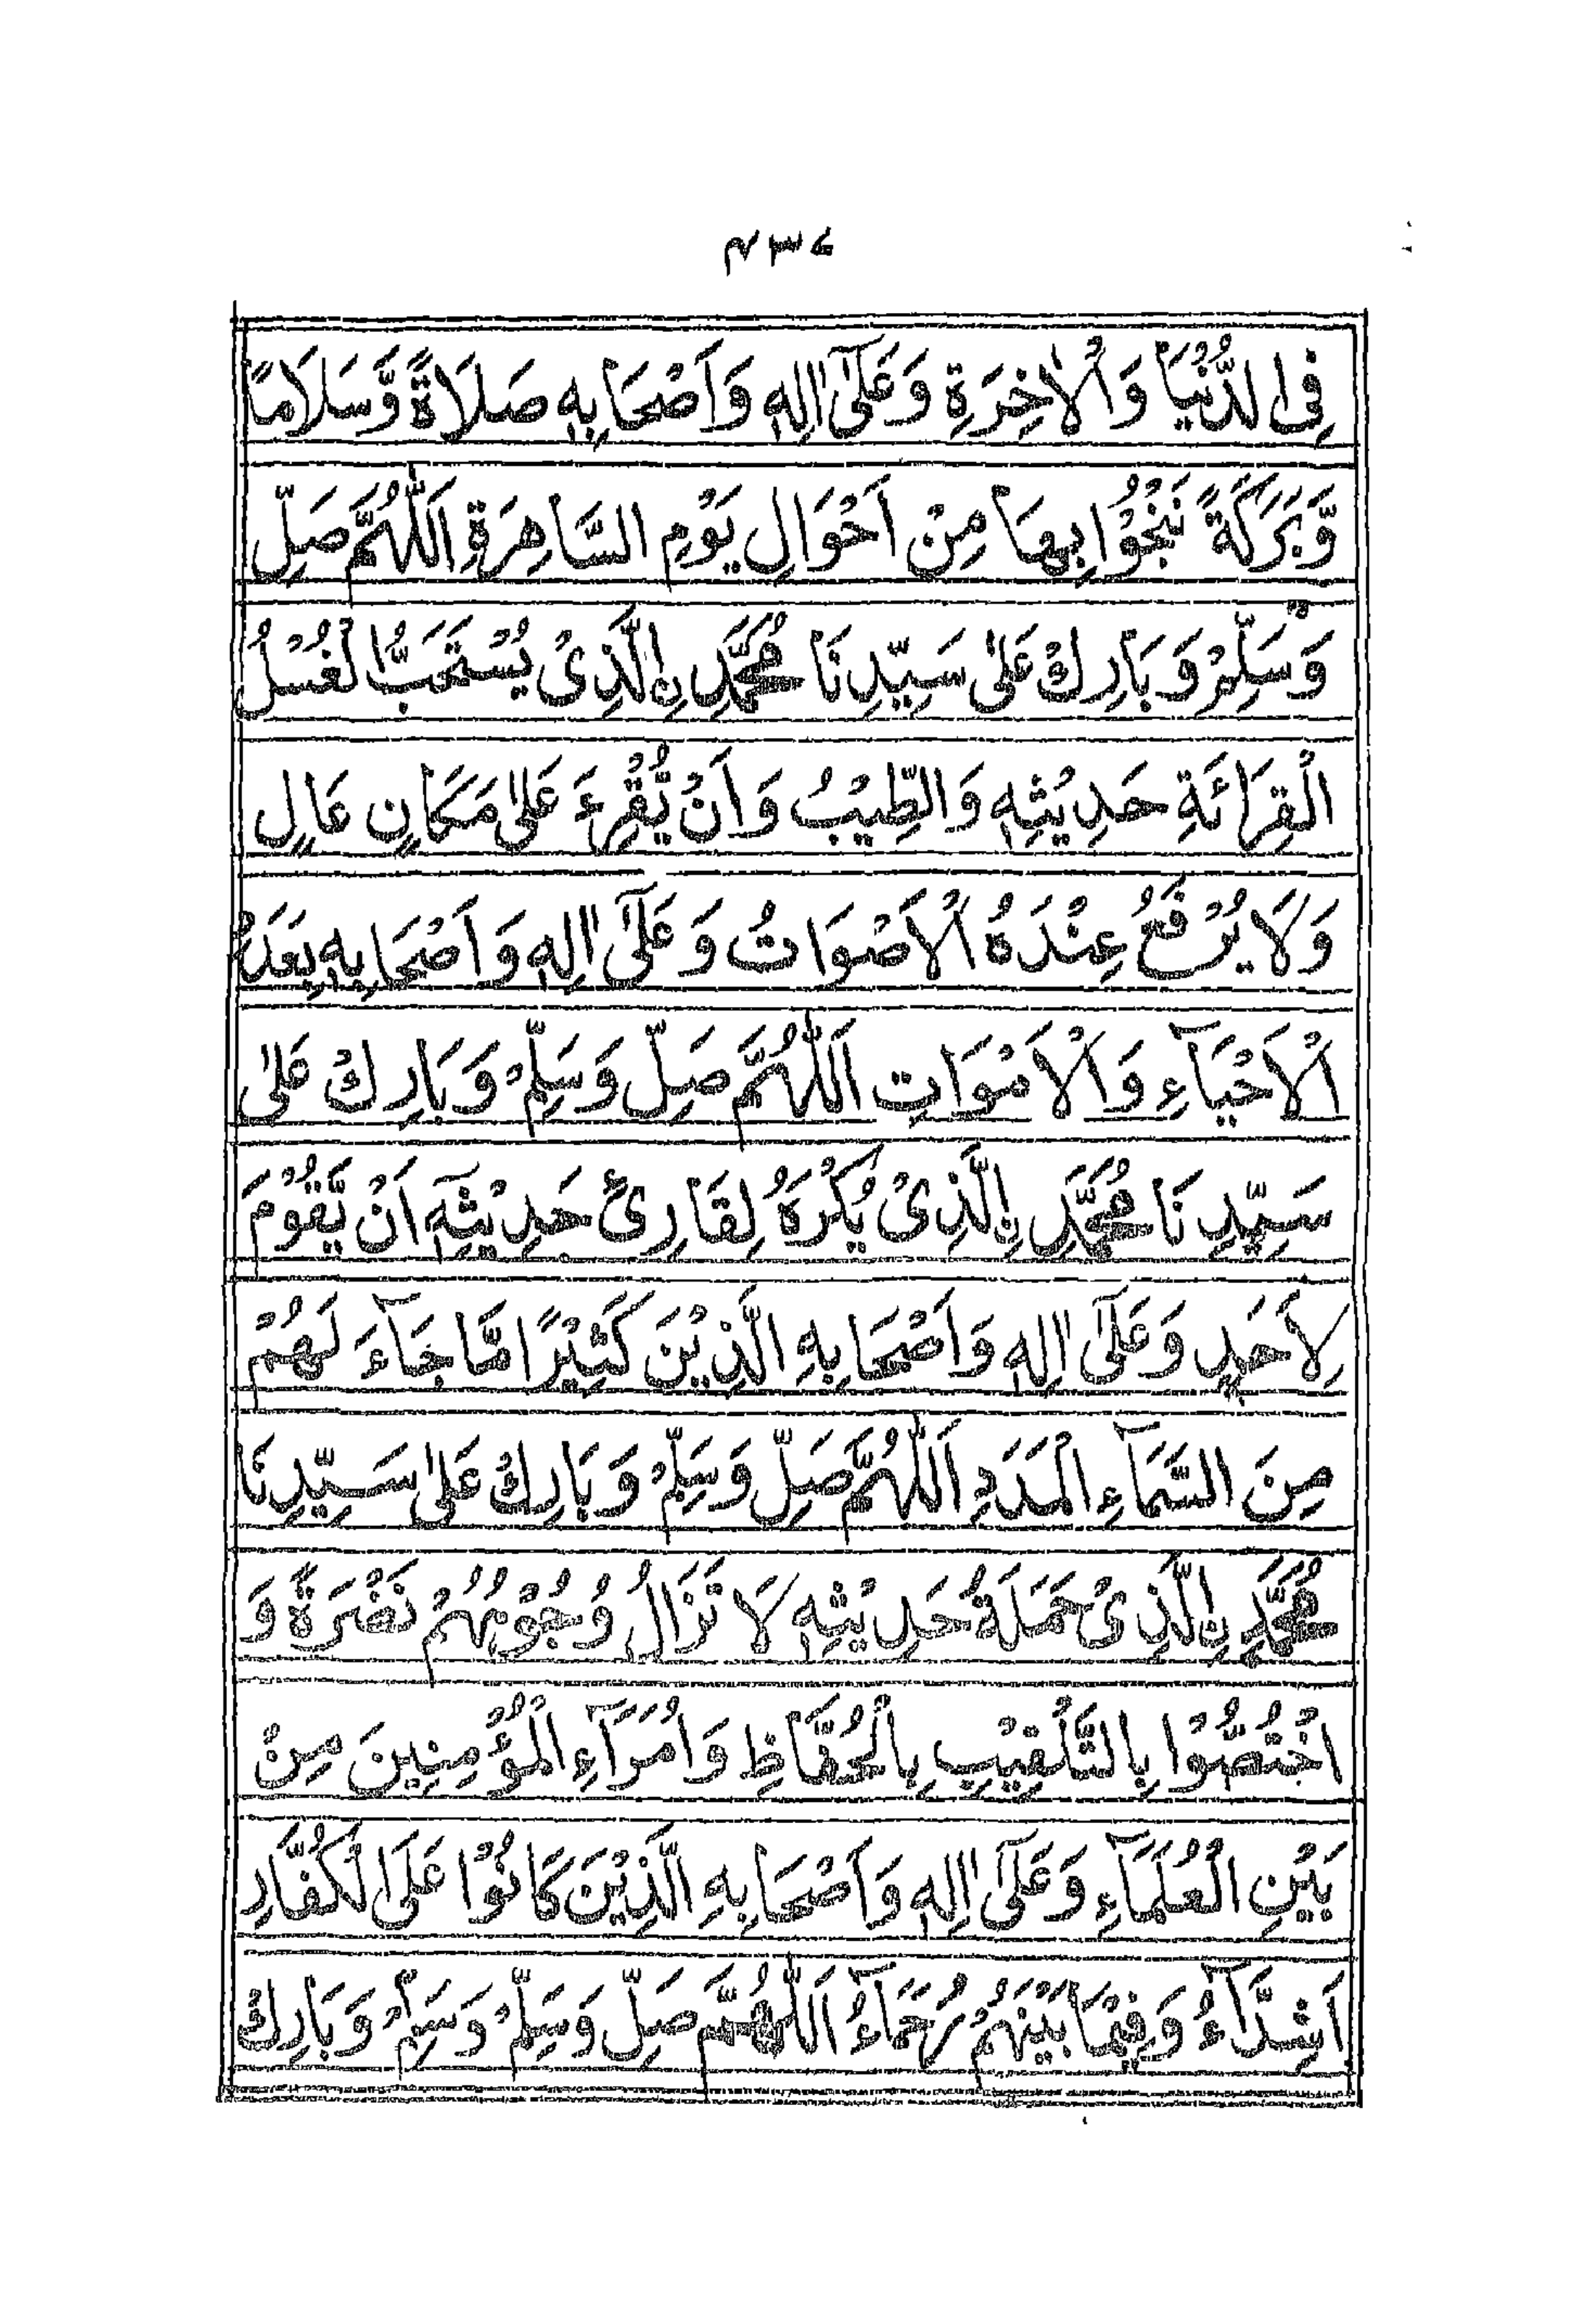 فِى الدُّنْيَا وَالْاٰخِرَةِ وَعَلٰٓى اٰلِهٖ وَاَصْحَابِهٖ صَلَاةً وَّسَلَامًا
وَّبَرَكَةً نَنْجُوْا بِهَا مِنْ اَحْوَالِ يَوْمِ السَّاهِرَةِ اَللّٰهُمَّ صَلِّ
وَسَلِّمْ وَبَارِكْ عَلٰى سَيِّدِنَا مُحَمَّدِ نِ الَّذِىْ يُسْتَحَبُّ الْغُسْلُ
الْقِرَائَةِ حَدِيْثِهٖ وَالطِّيْبُ وَاَنْ يُّقْرِءَ عَلٰى مَكَانٍ عَالٍ
وَلَا يُرْفَعُ عِنْدَهُ الْاَصْوَاتُ وَعَلٰٓى اٰلِهٖ وَاَصْحَابِهٖ بِعَدَدِ
الْاَحْيَآءِ وَالْاَمْوَاتِ اَللّٰهُمَّ صَلِّ وَسَلِّمْ وَبَارِكْ عَلٰى
سَيِّدِنَا مُحَمَّدِ نِ الَّذِىْ يُكْرَهُ لِقَارِئِ حَدِيْثِهٖٓ اَنْ يَّقُوْمَ
لِاَحَدٍ وَعَلٰٓى اٰلِهٖ وَاَصْحَابِهِ الَّذِيْنَ كَثِيْرًا مَّا جَآءَ لَهُمْ
مِنَ السَّمَآءِ الْمَدَدِ اَللّٰهُمَّ صَلِّ وَسَلِّمْ وَبَارِكْ عَلٰى سَيِّدِنَا
مُحَمَّدِ نِ الَّذِىْ حَمَلَةُ حَدِيْثِهٖ لَا تَزَالُ وُجُوْهُهُمْ نَضْرَةً وَ
اخْتُصُّوْا بِالتَّلْقِيْبِ بِالْحُفَّاظِ وَاُمَرَآءِ الْمُؤْمِنِيْنَ مِنْ
بَيْنِ الْعُلَمَآءِ وَعَلٰٓى اٰلِهٖ وَاَصْحَابِهِ الَّذِيْنَ كَانُوْا عَلَى الْكُفَّارِ
اَشِدَّآءُ وَفِيْمَا بَيْنَهُمْ رُحَمَآءُ اَللّٰهُمَّ صَلِّ وَسَلِّمْ وَسَلِّمْ وَبَارِكْ